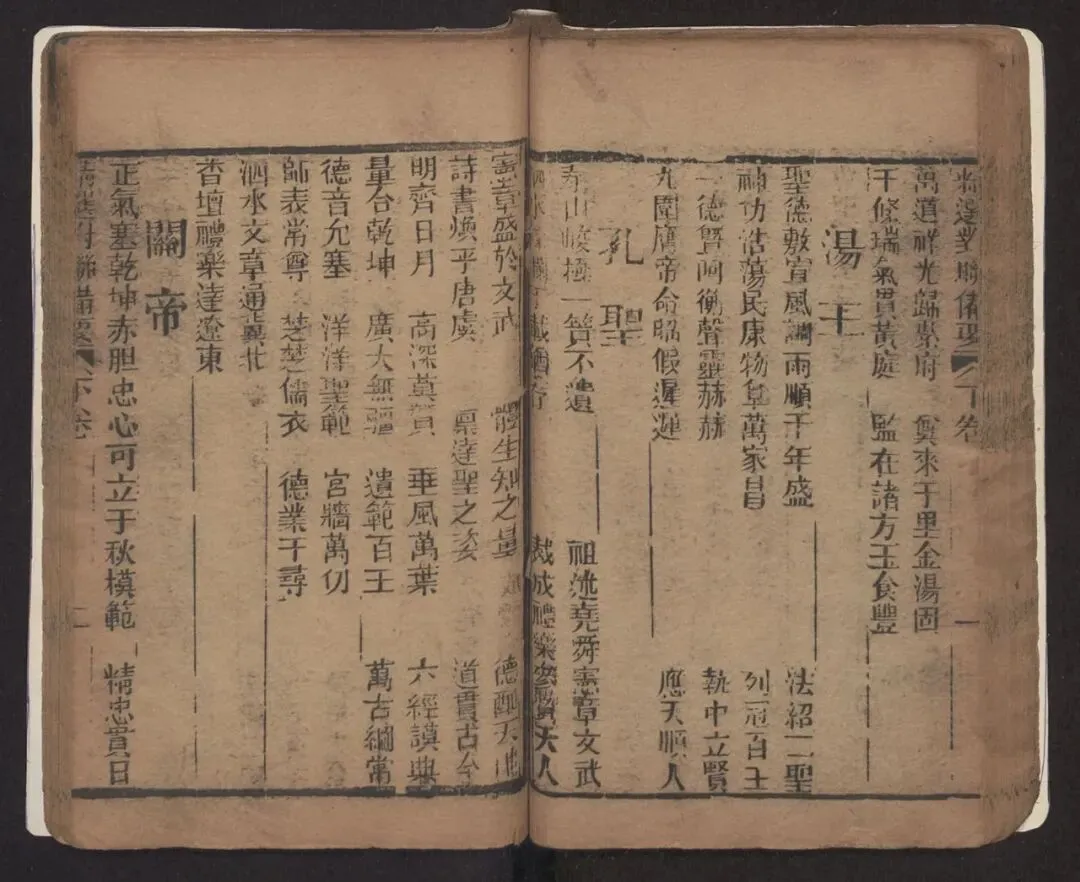 精選對聯備要 下卷 一
萬道祥光歸紫府 貺來千里金湯固
千條瑞氣貫黃庭 監在諸方玉食豐
湯王
聖德敷宣風調雨順千年盛 法紹二聖
神功浩蕩民康物阜萬家昌 列冠百王
一德賢阿衡聲靈赫赫 執中立賢
九圍膺帝命昭假遲遲 應天順人
孔聖
一簣不遺 祖述堯舜憲章文武
裁成禮樂 天人
憲章盛於文武 體生知之量 德配天地
詩書煥乎唐虞 稟達聖之姿 道貫古今
明齊日月 高深莫贊 垂風萬葉 六經謨典
量合乾坤 廣大無疆 遺範百王 萬古綱常
德音允塞 洋洋聖範 宮牆萬仞
師表常尊 楚楚儒衣 德業千尋
泗水文章通冀北
杏壇禮樂達遼東
關帝
正氣塞乾坤赤胆忠心可立千秋模範 精忠貫日
精選對聯備要 下卷 二